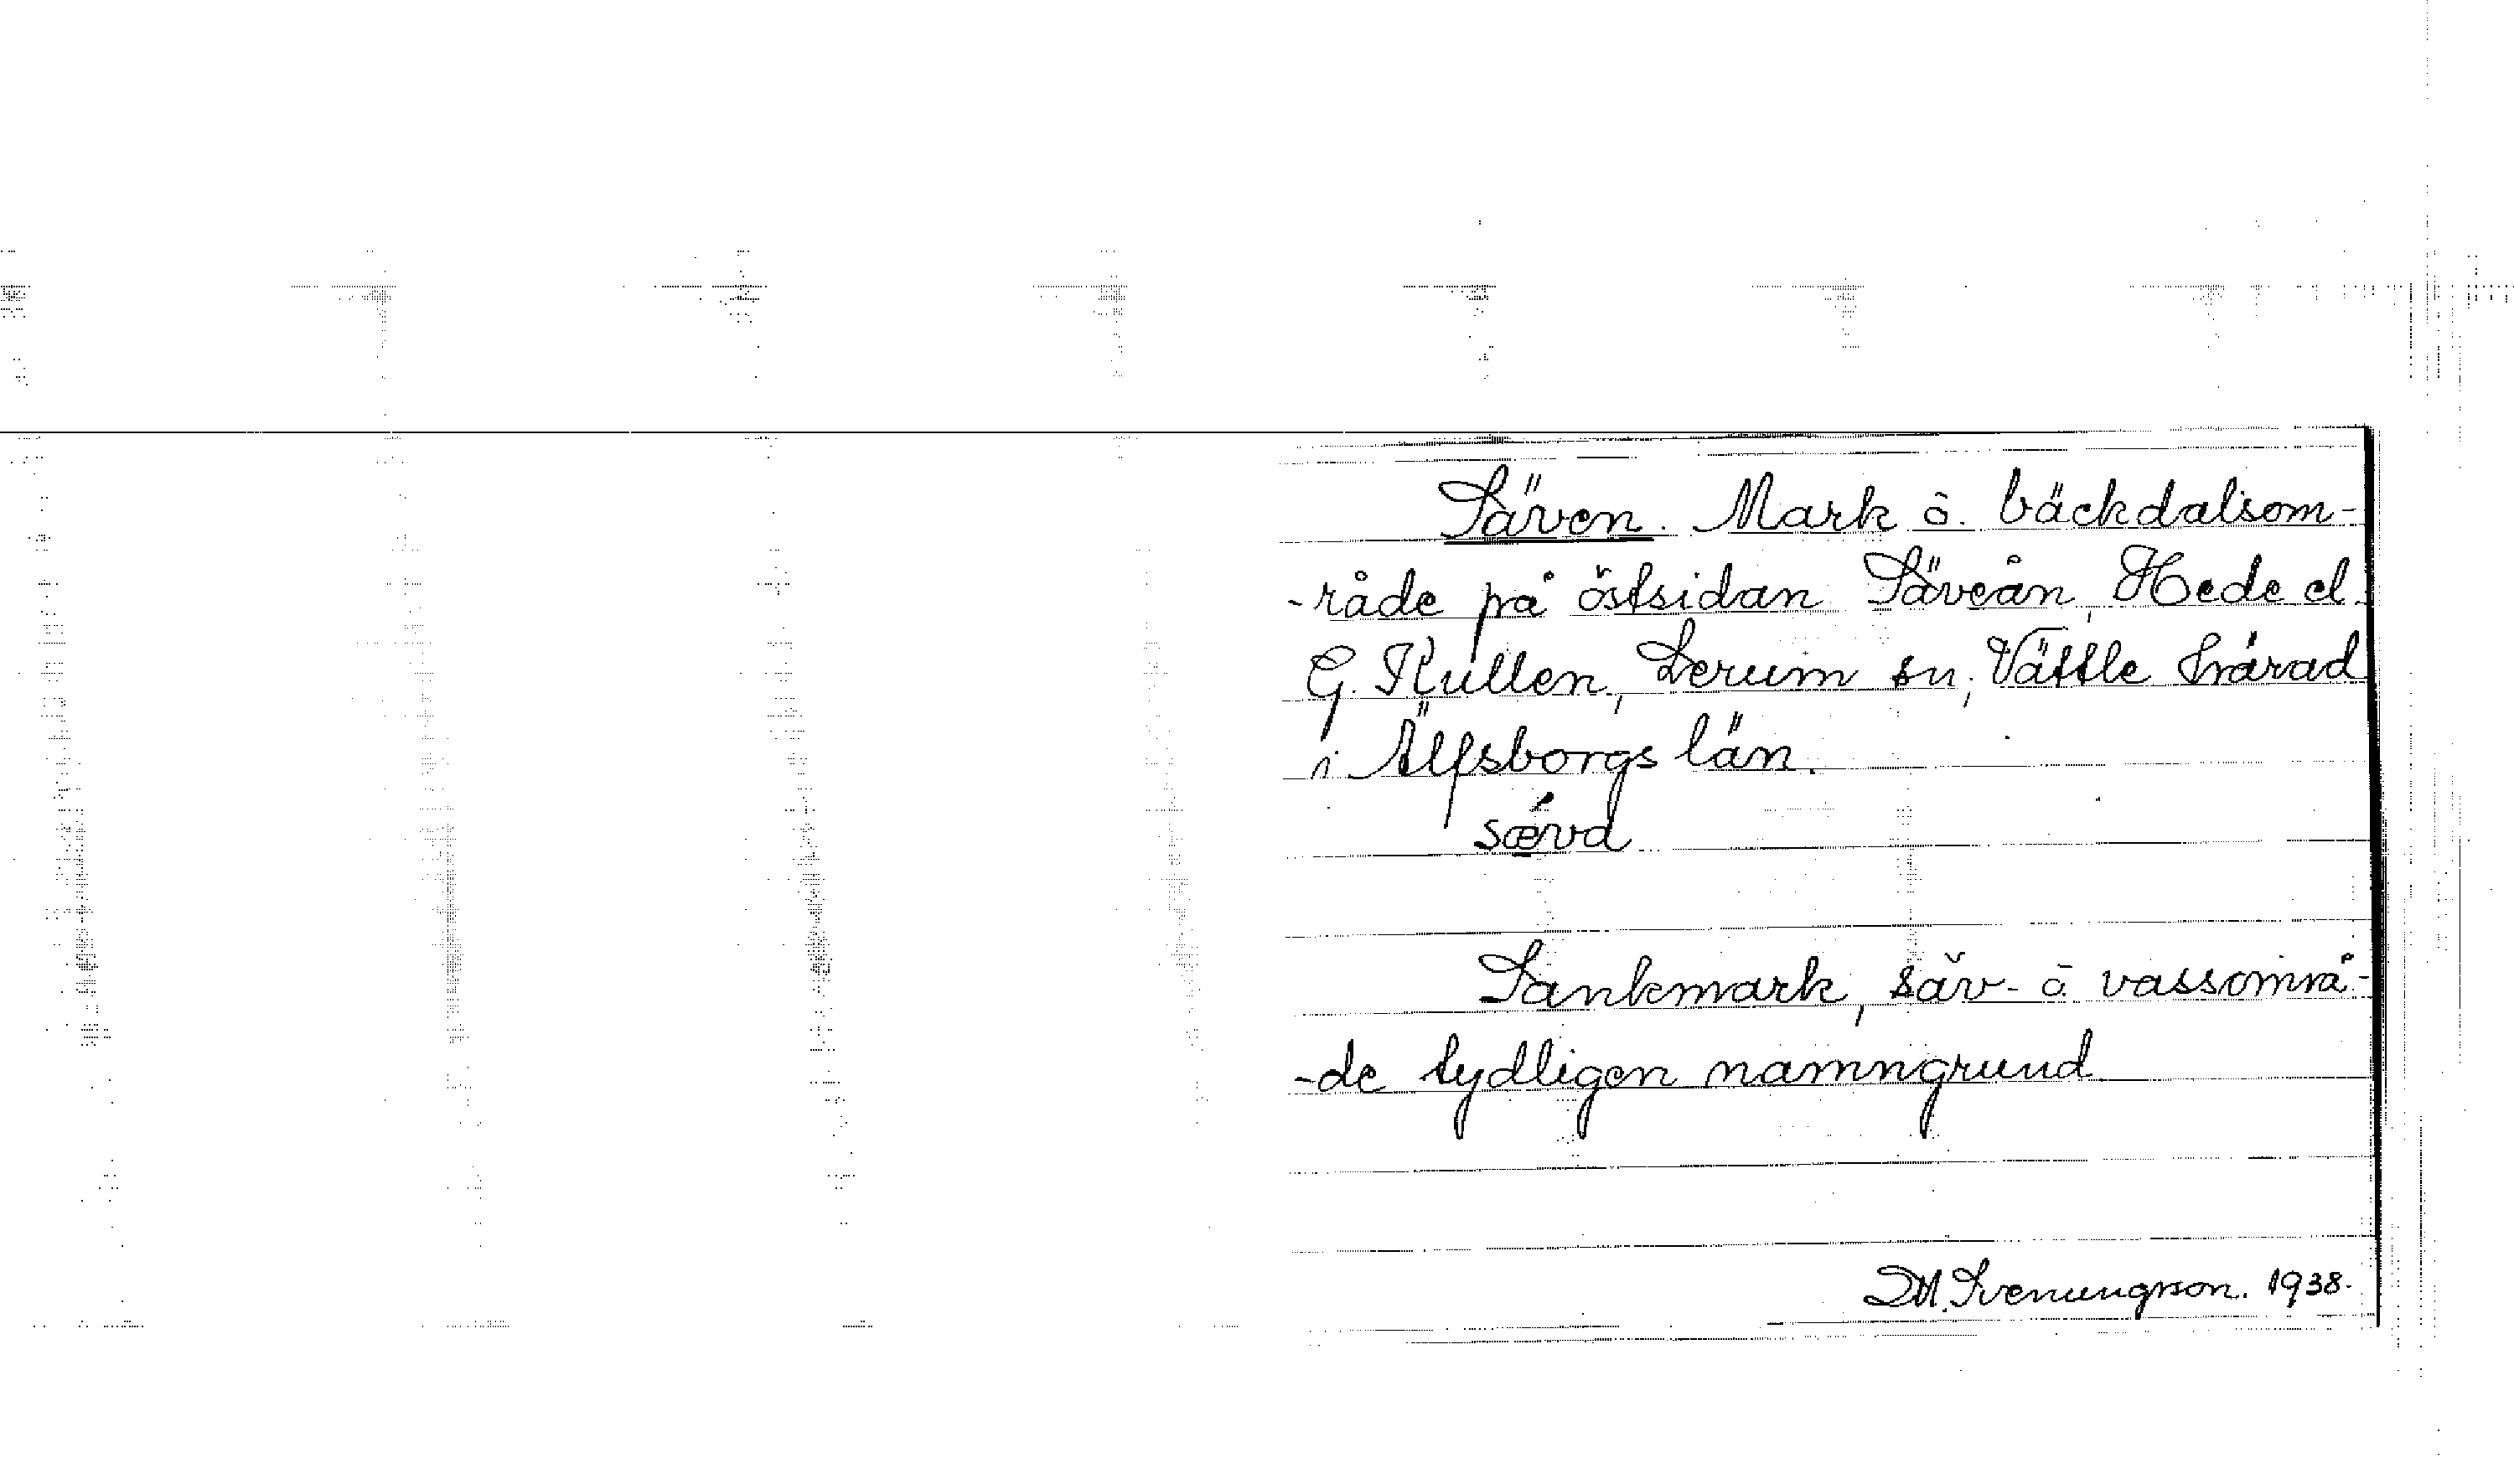 Säven. Mark o. bäckdalsom-
-råde på östsidan Säveån, Hede el.
G. Kullen, Lerum sn, Vättle härad
i Älfsborgs län.
sævd
Sankmark, säv- o. vassområ-
-de tydligen namngrund
D.M. Svenungsson. 1938.